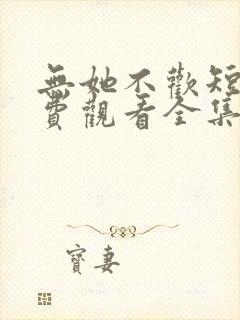 無她不歡短
費觀看全集
寶妻